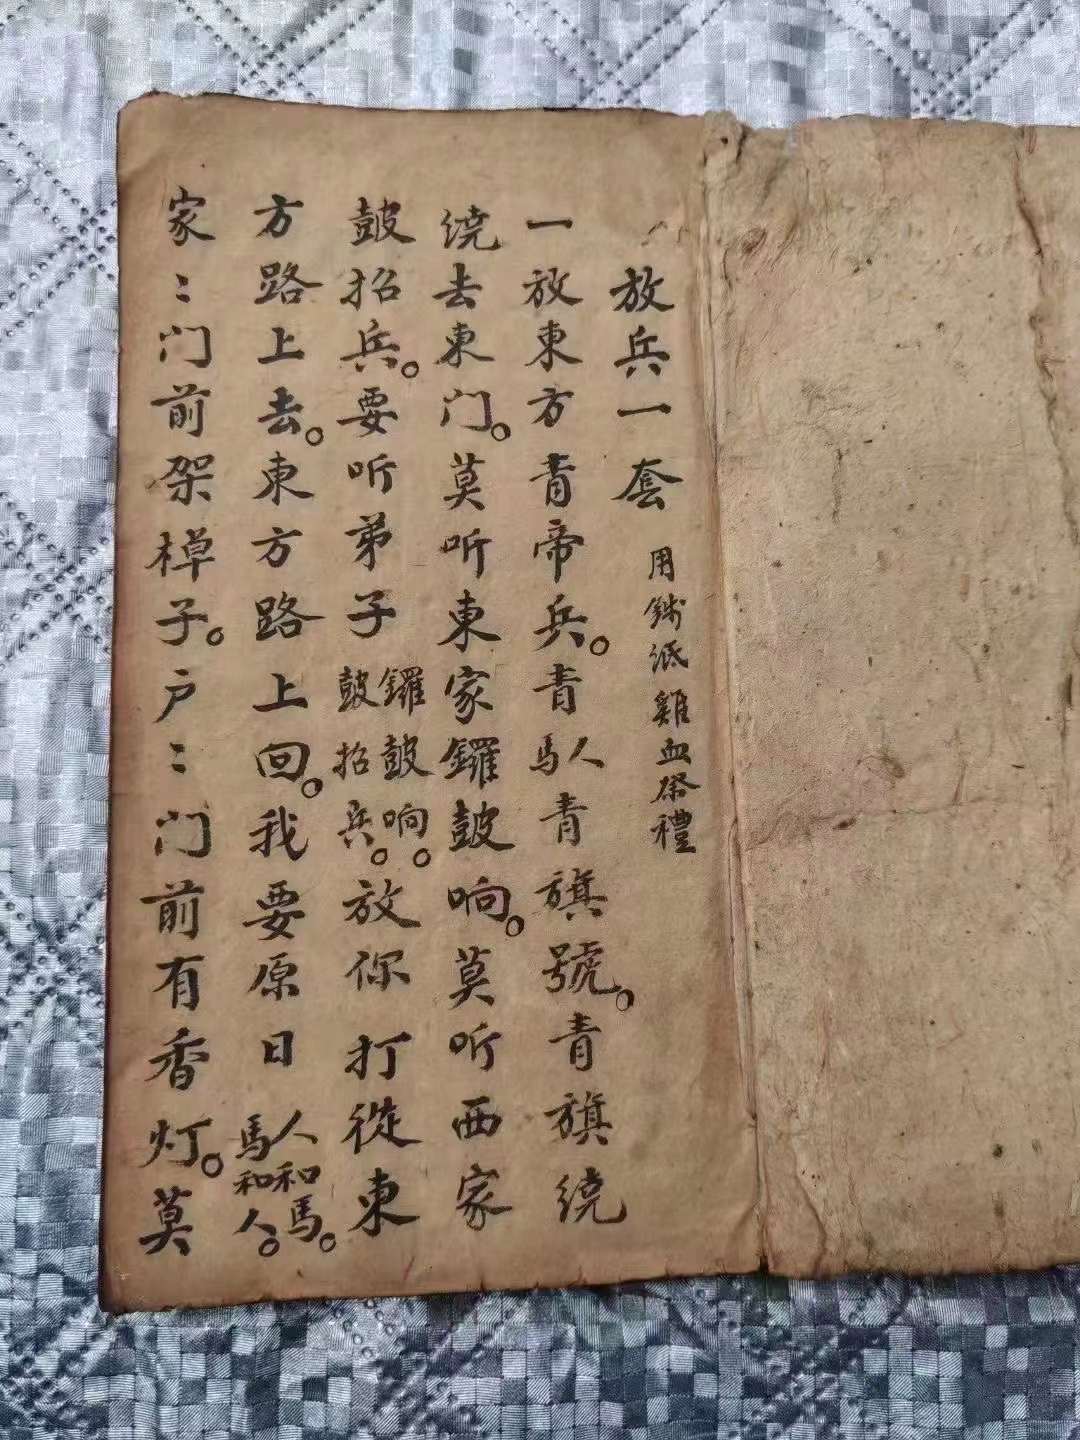 放兵一套 用錢纸雞血祭禮
一放東方青帝兵。青人馬青旗號。青旗绕
绕去東门。莫听東家鑼鼓响。莫听西家
鼓招兵。要听弟子鑼鼓响。鼓招兵。放你打從東
方路上去。東方路上回。我要原日人和馬。馬和人。
家〻门前架棹子。户〻门前有香灯。莫